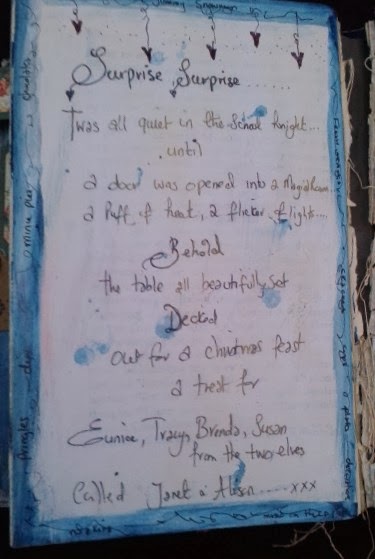 Surprise Surprise......
Twas all quiet in the School tonight...
until
a door was opened into a Magical Room
a Puff of heat, a flicker of lights....
Behold
the table all beautifully set
Decked
out for a christmas feast
a treat for
Eunice, Tracy, Brenda, Susan
from the two elves
Called Janet & Alison ..... xxx
mince pies
Pringles
dip